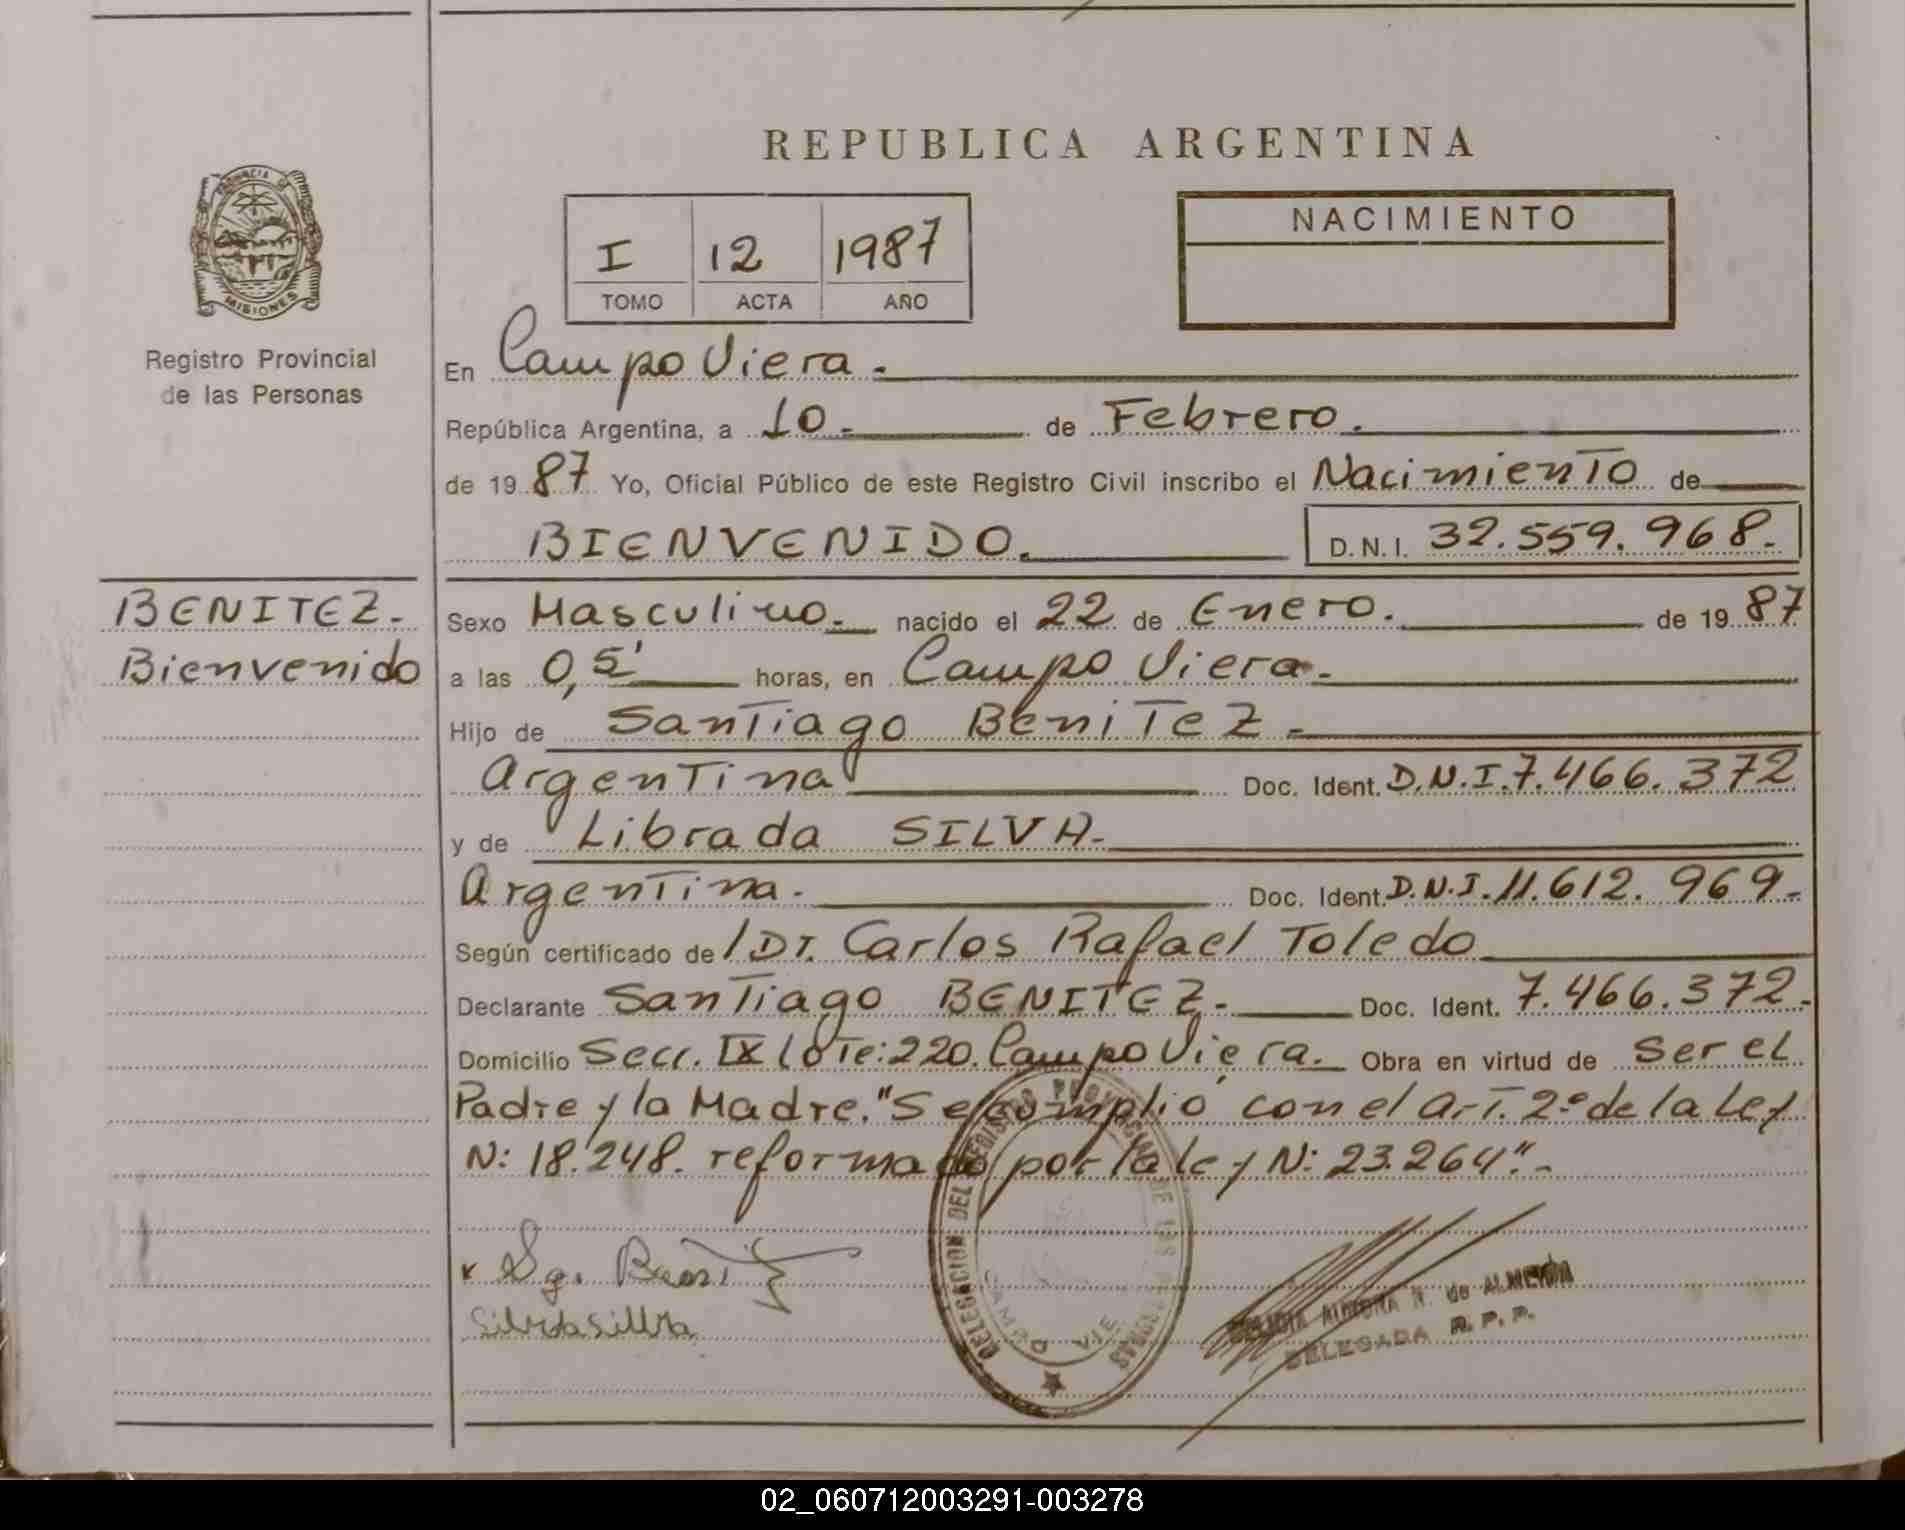 REPUBLICA ARGENTINA
PROVINCIA DE
MISIONES
Registro Provincial
de las Personas
I 12 1987
TOMO ACTA AÑO
NACIMIENTO
En Campo Viera.
República Argentina, a 10 - de Febrero.
de 19 87 Yo, Oficial Público de este Registro Civil inscribo el Nacimiento de
BIENVENIDO. D.N.I. 32.559.968.-
BENITEZ.-
Bienvenido
Sexo Masculino.- nacido el 22 de Enero. de 19 87
a las 0,5' horas, en Campo Viera.-
Hijo de Santiago Benitez -
Argentina Doc. Ident. D.N.I. 7.466.372
y de Librada SILVA.-
Argentina. Doc. Ident. D.N.I. 11.612.969.-
Según certificado de / Dr. Carlos Rafael Toledo
Declarante Santiago BENITEZ.- Doc. Ident. 7.466.372.-
Domicilio Secc. IX lote: 220. Campo Viera. Obra en virtud de ser el
Padre y la Madre. "Se cumplió con el art. 2º de la Ley
N: 18.248. reformado por la ley N: 23.264".-
DELEGACION DEL REGISTRO PROVINCIAL DE LAS PERSONAS
CAMPO VIE
N. de ALMEIDA
DELEGADA R. P. P.
02_060712003291-003278